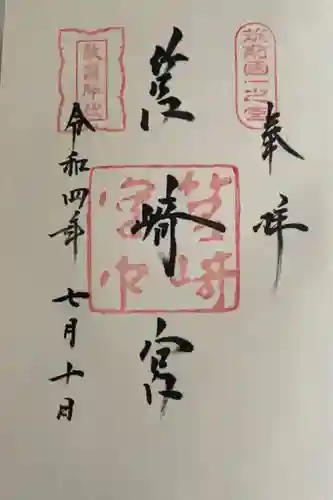 奉拝
筑前國一之宮
筥崎宮
筥崎宮印
敵國降伏
令和四年七月十日